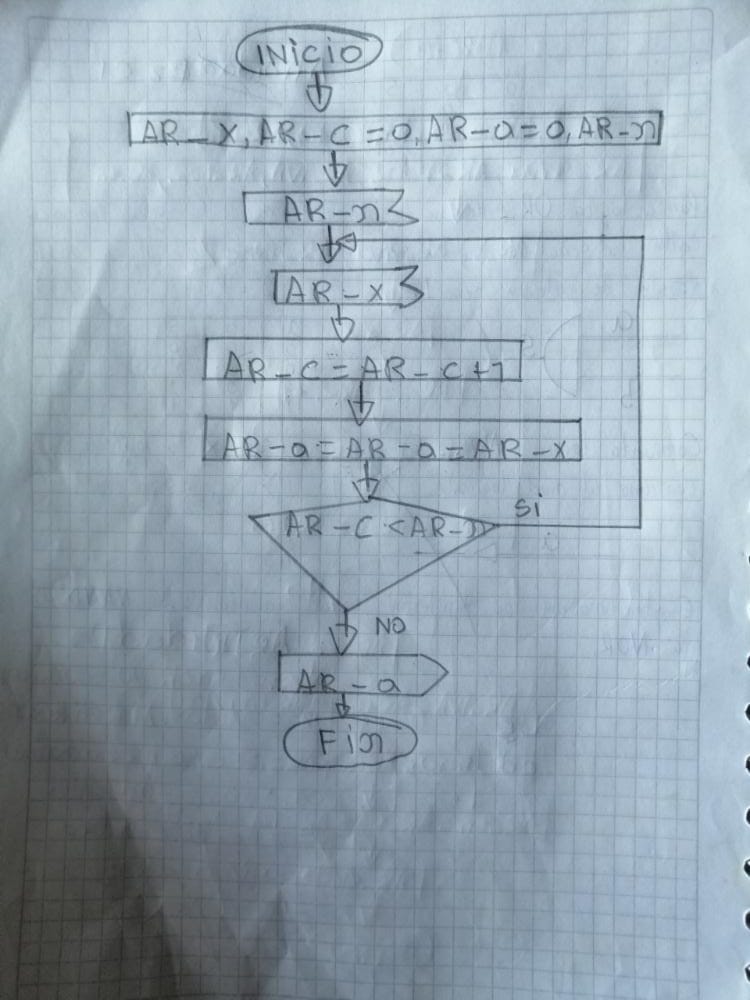 INICIO
AR-X, AR-C=0, AR-a=0, AR-n
AR-n
AR-x
AR-C=AR-C+1
AR-a=AR-a=AR-x
AR-C<AR-n
si
NO
AR-a
Fin